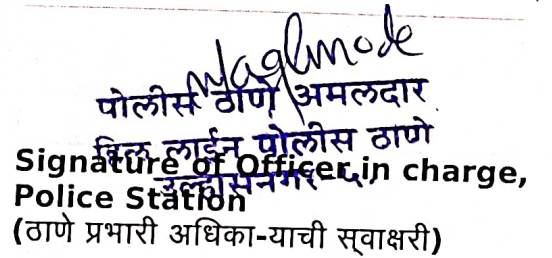 Waghmode
पोलीस ठाणे अमलदार
हिल लाईन पोलीस ठाणे
उल्हासनगर-५
Signature of Officer in charge,
Police Station
(ठाणे प्रभारी अधिका-याची स्वाक्षरी)